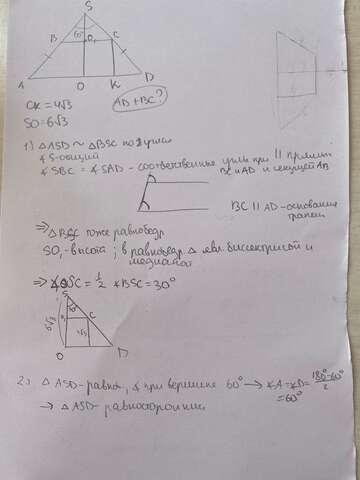 S
60°
B O₁ C
A O K D
CK = 4√3
AD + BC?
SO = 6√3
1) △ASD ~ △BSC по 2 углам
∢S - общий
∢SBC = ∢SAD - соответственные углы при || прямых
BC и AD и секущей AB
BC || AD - основания
трапец
⇒ △BSC тоже равнобедр
SO₁ - высота ; в равнобедр △ явл. биссектрисой и
медианой
⇒ ∢OSC = ½ ∢BSC = 30°
S
6√3 C
4√3
O D
2) △ASD - равноб, ∢ при вершине 60° → ∢A = ∢D = 180°-60°/2
= 60°
→ △ASD - равносторонний